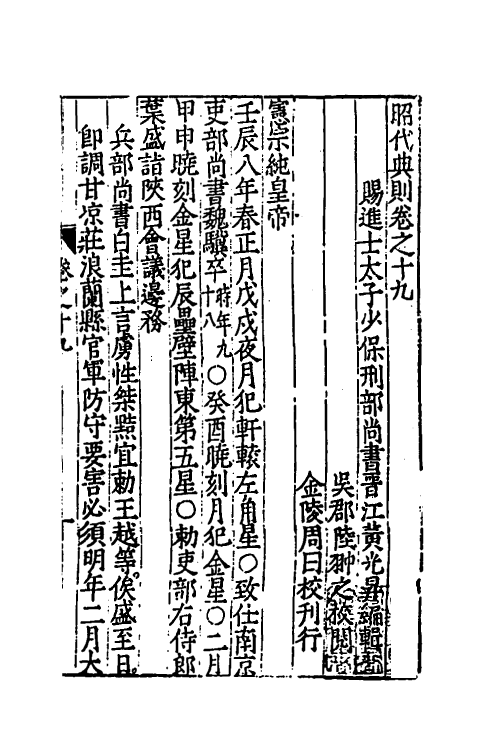 昭代典則卷之十九
賜進士太子少保刑部尚書晉江黃光昇編輯
吳郡陸翀之校閱
金陵周曰校刊行
憲宗純皇帝
壬辰八年春正月戊戌夜月犯軒轅左角星○致仕南京
吏部尚書魏驥卒時年九十八○癸酉曉刻月犯金星○二月
甲申曉刻金星犯辰壘壁陣東第五星○勅吏部右侍郎
葉盛詣陝西會議邊務
兵部尚書白圭上言虜性桀黠宜勅王越等俟盛至日
即調甘凉莊浪蘭縣官軍防守要害必須明年二月大
卷之十九
一